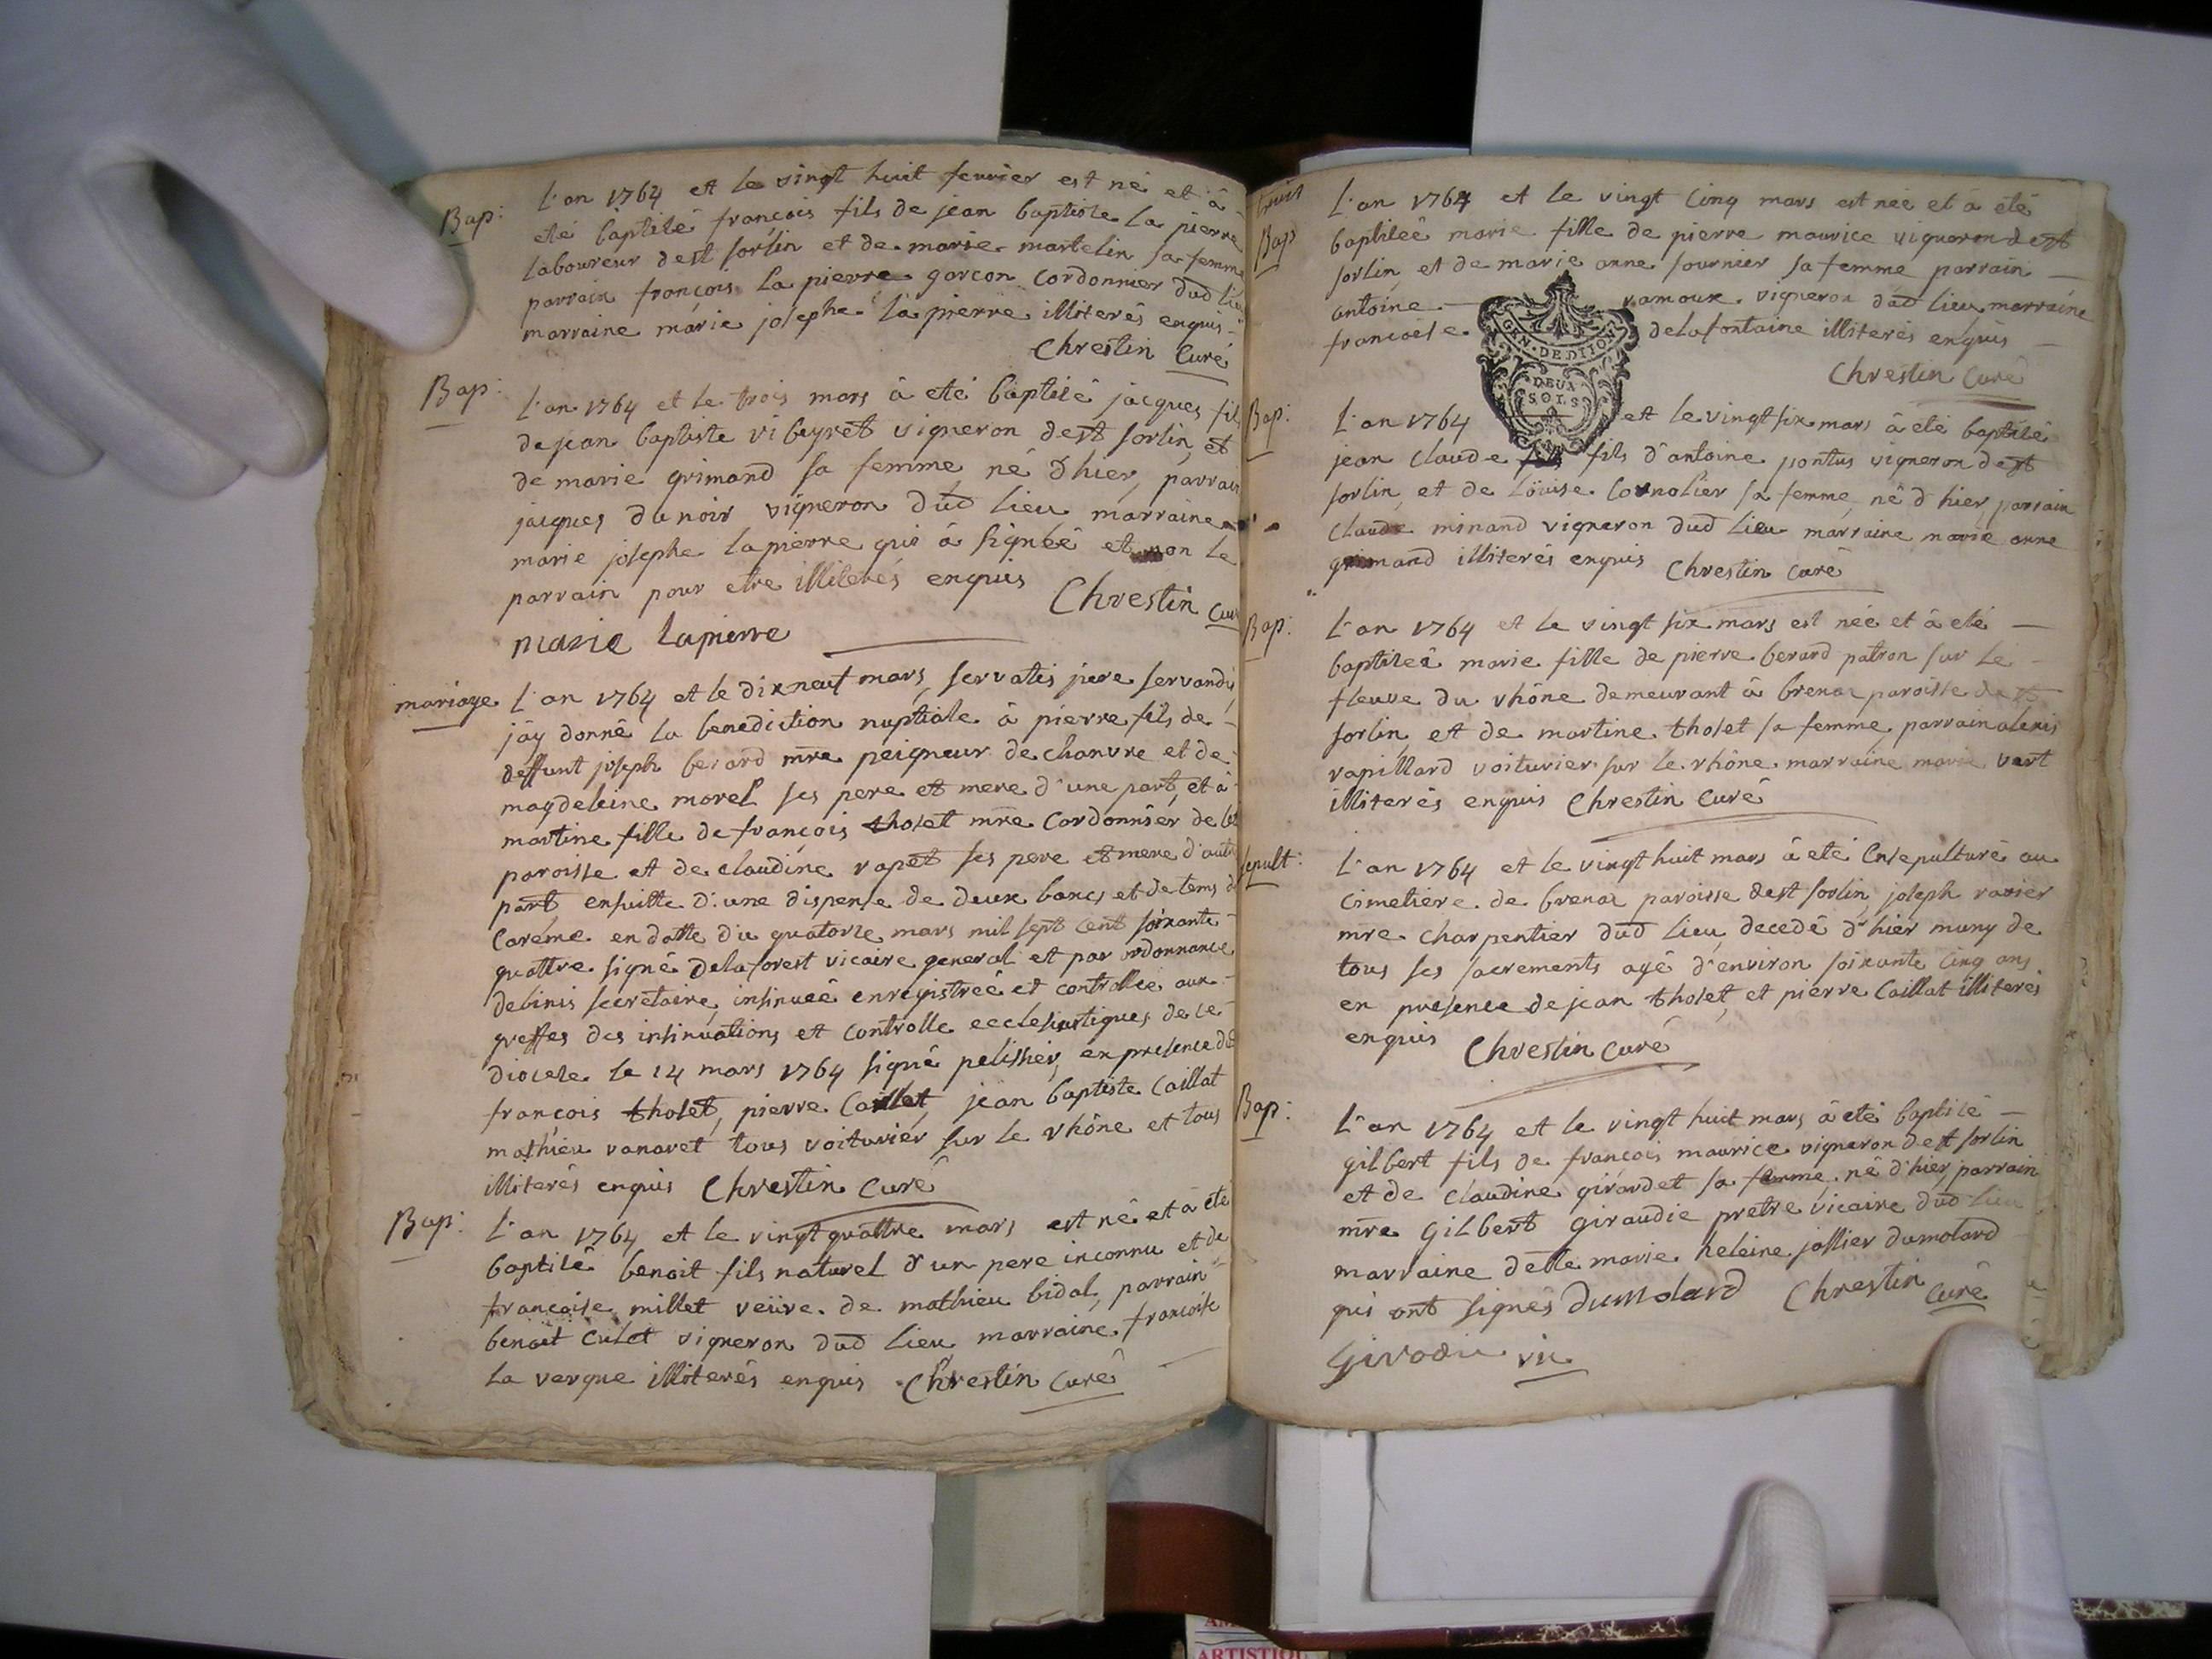 Bap:
L'an 1764 et le vingt huit fevrier est né et à
eté baptisé françois fils de jean baptiste la pierre
laboureur dest sorlin et de marie martelin sa femme
parrain françois la pierre garçon cordonnier dud lieu
marraine marie josephe la pierre illiterés enquis
Chrestin Curé
Bap:
L'an 1764 et le trois mars à eté baptisé jacques fils
de jean baptiste vibeyret vigneron dest sorlin, et
de marie grimand sa femme, né d'hier, parrain
jacques dunoir vigneron dud lieu marraine
marie josephe lapierre qui à signéé et non le
parrain pour etre illiterés enquis
Chrestin Cur
marie lapierre
mariage
L'an 1764 et le dixneuf mars, servatis jure servandis
j'ay donné la benediction nuptiale à pierre fils de
deffunt joseph berard mre peigneur de chanvre et de
magdeleine morel ses pere et mere d'une part, et à
martine fille de françois tholet mre Cordonnier de
paroisse et de claudine rapet ses pere et mere d'autre
part, ensuitte d'une dispense de deux bancs et de tems de
Careme en datte du quatorze mars mil sept cent soixante
quattre signé delaforest vicaire general et par ordonnance
delinis secretaire, insinuéé enregistréé et controllee aux
greffes des insinuations et controlle ecclesiastiques de ce
diocese le 14 mars 1764 signé pelissier, en presence dud
françois tholet, pierre Caillat, jean baptiste Caillat
mathieu vanaret tous voiturier sur le rhône et tous
illiterés enquis Chrestin Curé
Bap:
L'an 1764 et le vingtquattre mars est né et à eté
baptisé benoit fils naturel d'un pere inconnu et de
françoise millet veüve de mathieu bidal, parrain
benoit Culet vigneron dud lieu marraine françoise
la vergne illiterés enquis Chrestin Curé
Bap
L'an 1764 et le vingt cinq mars est née et à eté
baptiséé marie fille de pierre maurice vigneron dest
sorlin, et de marie anne fournier sa femme parrain
antoine ramoux vigneron dud lieu marraine
françoise delafontaine illiterés enquis
GEN. DE DIJON
DEUX
SOLS
Chrestin Curé
Bap:
L'an 1764 et le vingt six mars à eté baptisé
jean claude fils d'antoine pontus vigneron dest
sorlin, et de Loüise Cornolier sa femme, né d'hier parrain
Claude minand vigneron dud lieu marraine marie anne
grimand illiterés enquis Chrestin Curé
Bap:
L'an 1764 et le vingt six mars est née et à eté
baptiséé marie fille de pierre berard patron sur le
fleuve du rhône demeurant à brenaz paroisse dest
sorlin, et de martine tholet sa femme, parrain alexis
rapillard voiturier sur le rhône marraine marie vart
illiterés enquis Chrestin Curé
sepult:
L'an 1764 et le vingt huit mars à eté Ensepulturé au
Cimetiere de brenaz paroisse dest sorlin, joseph ravier
mre charpentier dud lieu decedé d'hier muny de
tous ses sacrements agé d'environ soixante cinq ans
en presence de jean tholet, et pierre Caillat illiterés
enquis Chrestin Curé
Bap:
L'an 1764 et le vingt huit mars à eté baptisé
Gilbert fils de françois maurice vigneron dest sorlin
et de claudine girardet sa femme, né d'hier, parrain
mre Gilbert Giraudie pretre vicaire dud lieu
marraine delle marie heleine jollier dumolard
qui ont signés Dumolard Chrestin Curé
Girodie vic